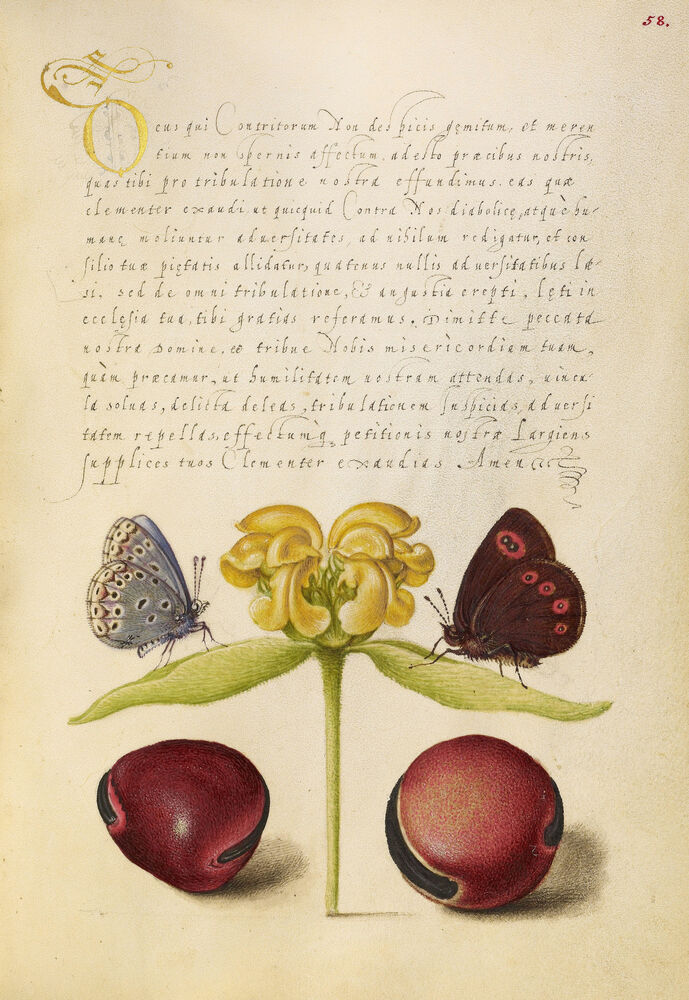 58.
Deus qui Contritorum Non despicis gemitum, et meren
tium non spernis affectum. adesto præcibus nostris,
quas tibi pro tribulatione nostra effundimus. eas quæ
clementer exaudi ut quicquid Contra Nos diabolicę, atquè hu-
manę moliuntur aduersitates, ad nihilum redigatur, et con
silio tuæ piętatis allidatur, quatenus nullis aduersitatibus læ-
si. sed de omni tribulatione, & angustia erepti, lęti in
ecclęsia tua, tibi gratias referamus. Dimitte peccata
nostra Domine. et tribue Nobis misericordiam tuam,
quàm præcamur, ut humilitatem nostram attendas, uincu-
la soluas, delicta deleas, tribulationem Inspicias, aduersi
tatem repellas. effectumq, petitionis nostræ Largiens
supplices tuos Clementer exaudias Amen